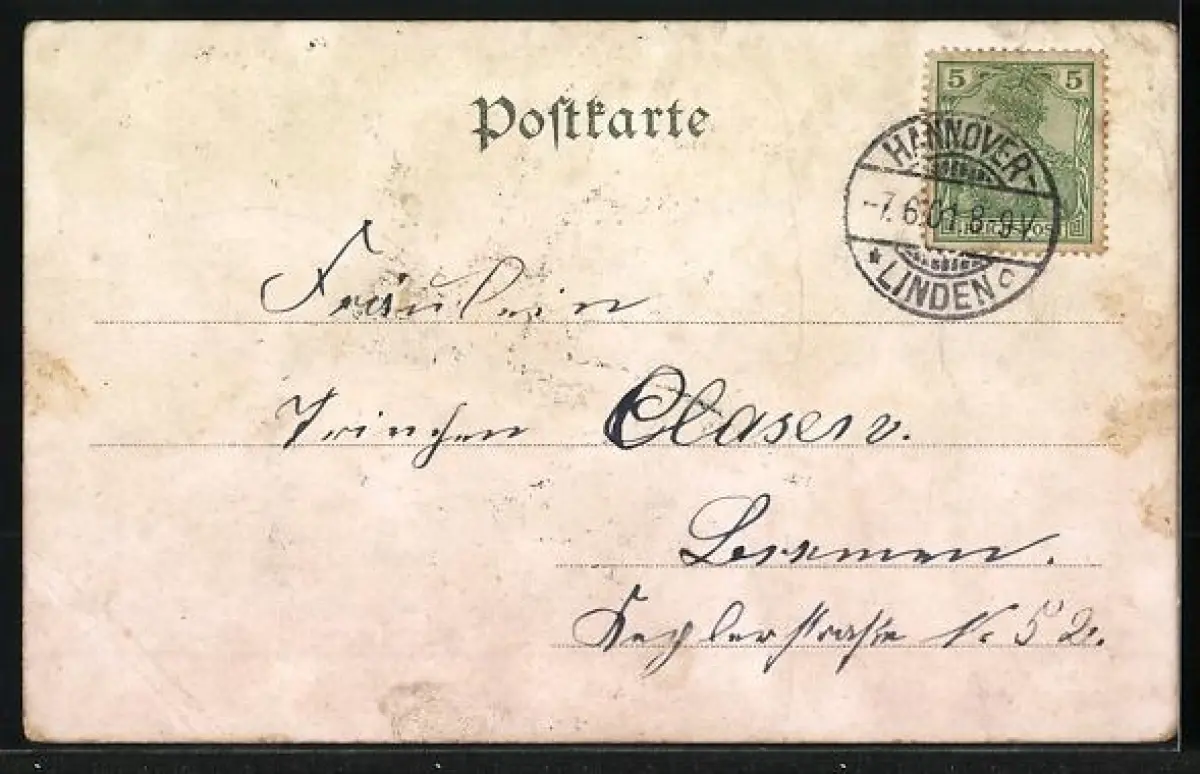 Postkarte
5 5
REICHSPOST
HANNOVER-
-7.6.01 8-9V.
* LINDEN c
Fräulein
Trinchen Clasen.
Bremen.
Keplerstraße N. 52.